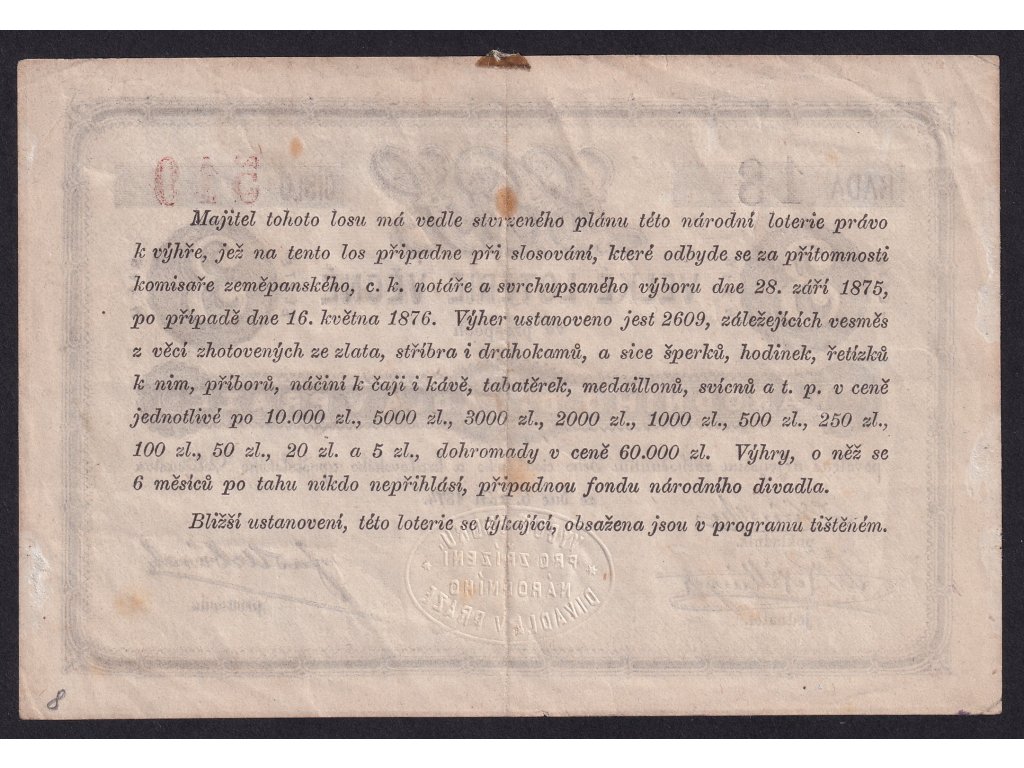 ŘADA 18
ČÍSLO 549
Majitel tohoto losu má vedle stvrzeného plánu této národní loterie právo
k výhře, jež na tento los připadne při slosování, které odbyde se za přítomnosti
komisaře zeměpanského, c. k. notáře a svrchupsaného výboru dne 28. září 1875,
po případě dne 16. května 1876. Výher ustanoveno jest 2609, záležejících vesměs
z věcí zhotovených ze zlata, stříbra i drahokamů, a sice šperků, hodinek, řetízků
k nim, příborů, náčiní k čaji i kávě, tabatěrek, medaillonů, svícnů a t. p. v ceně
jednotlivé po 10.000 zl., 5000 zl., 3000 zl., 2000 zl., 1000 zl., 500 zl., 250 zl.,
100 zl., 50 zl., 20 zl. a 5 zl., dohromady v ceně 60.000 zl. Výhry, o něž se
6 měsíců po tahu nikdo nepřihlásí, připadnou fondu národního divadla.
Bližší ustanovení, této loterie se týkající, obsažena jsou v programu tištěném.
PRO ZŘÍZENÍ
NÁRODNÍHO
DIVADLA V PRAZE
8